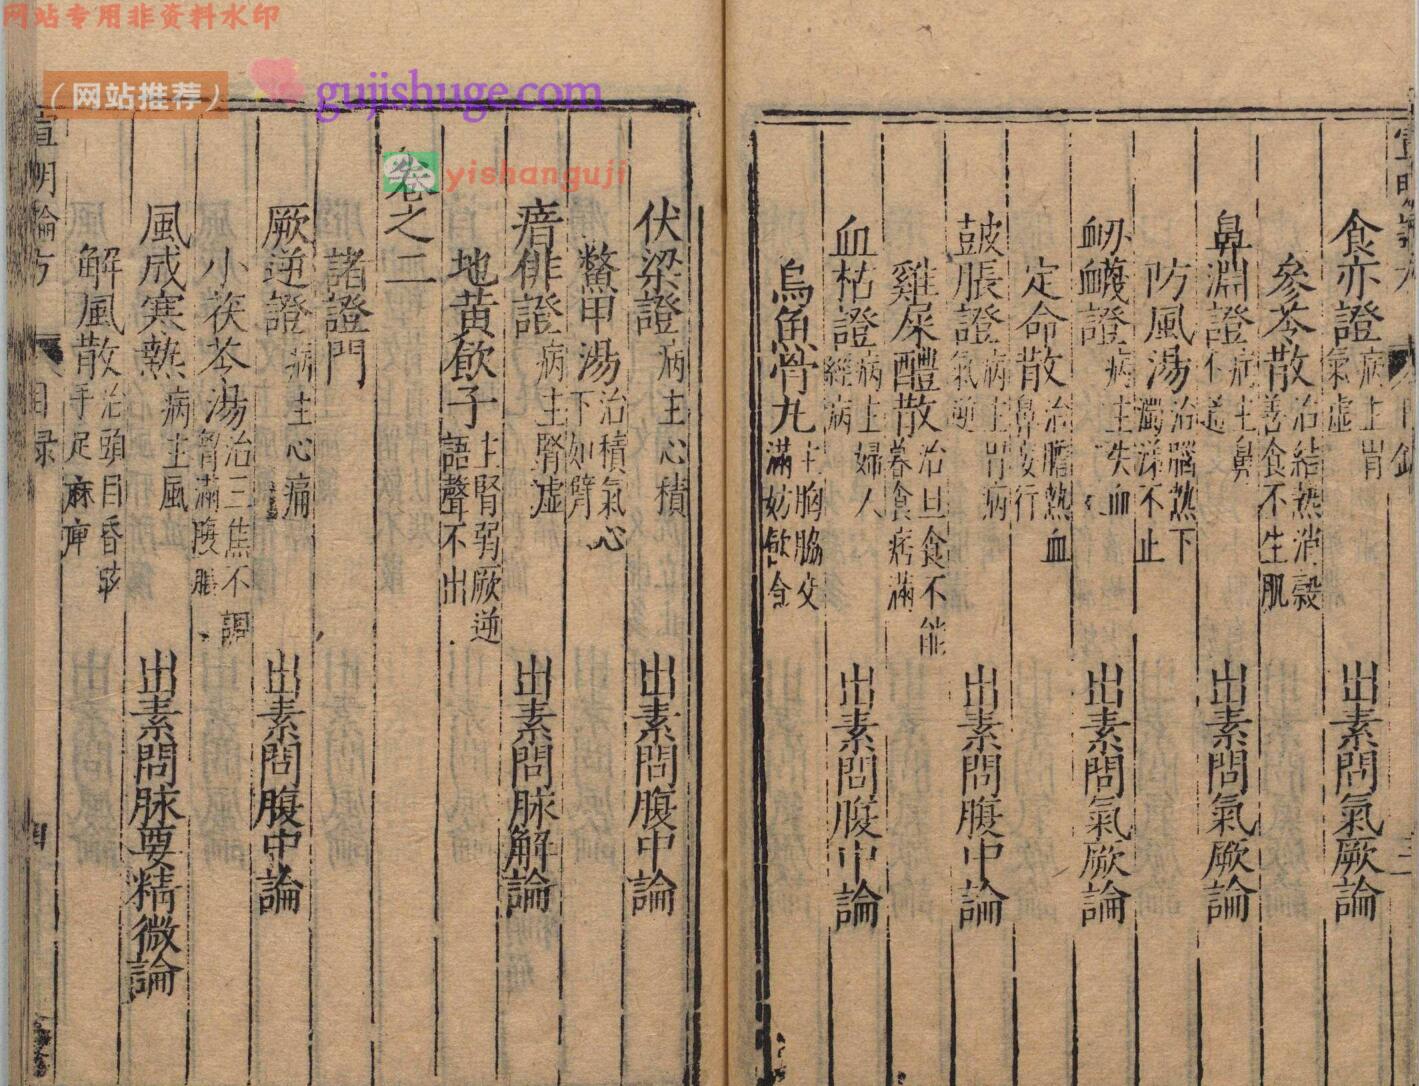 网站专用非资料水印
(网站推荐)
gujishuge.com
yishanguji
食亦證 病主胃氣虛 出素問氣厥論
參苓散 治結熱消穀善食不生肌
鼻淵證 病主鼻不 出素問氣厥論
防風湯 治腦熱下濁涕不止
衂衊證 病主失血 出素問氣厥論
定命散 治膽熱血鼻 行
鼓脹證 病主胃病氣逆 出素問腹中論
雞屎醴散 治旦食不能暮食痞滿
血枯證 病主婦人經病 出素問腹中論
烏魚骨丸 主胸脇支滿妨飲食
伏梁證 病主心積 出素問腹中論
鱉甲湯 治積氣心下如臂
瘖俳證 病主腎虛 出素問脉解論
地黃飲子 主腎弱厥逆語聲不出
卷之二
諸證門
厥逆證 病主心痛 出素問腹中論
小茯苓湯 治三焦不調腎滿腹脹
風成寒熱 病主風 出素問脉要精微論
解風散 治頭目昏眩手足麻痺
宣明論方 目录 四